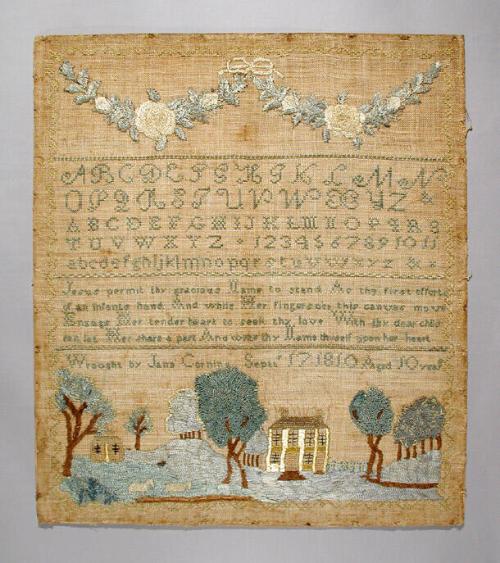 A B C D E F G H I K L M N
O P Q R S T U V W X Y Z &
A B C D E F G H I J K L M N O P Q R S
T U V W X Y Z 1 2 3 4 5 6 7 8 9 10 11
a b c d e f g h i j k l m n o p q r s t u v w x y z &
Jesus permit thy gracious Name to stand As the first efforts
of an infants hand And while Her fingers oer this canvas move
Engage Her tender heart to seek thy love With thy dear chil
ren let Her share a part And write thy Name thyself upon her heart
Wrought by Jane Septr 17 1810 Aged 10 years